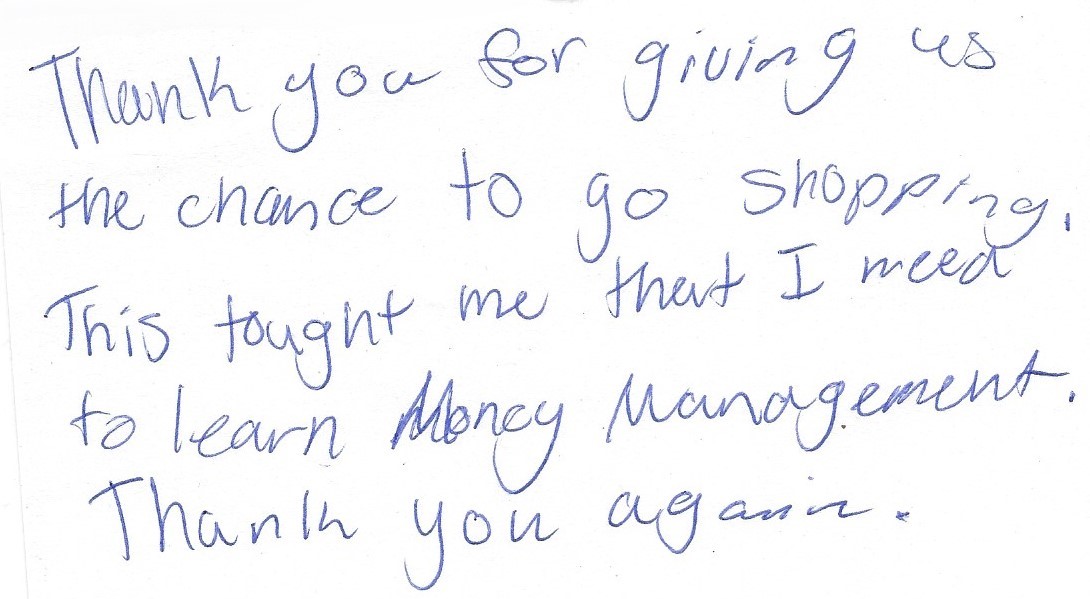 Thank you for giving us
the chance to go shopping.
This tought me that I need
to learn Money Management.
Thank you again.